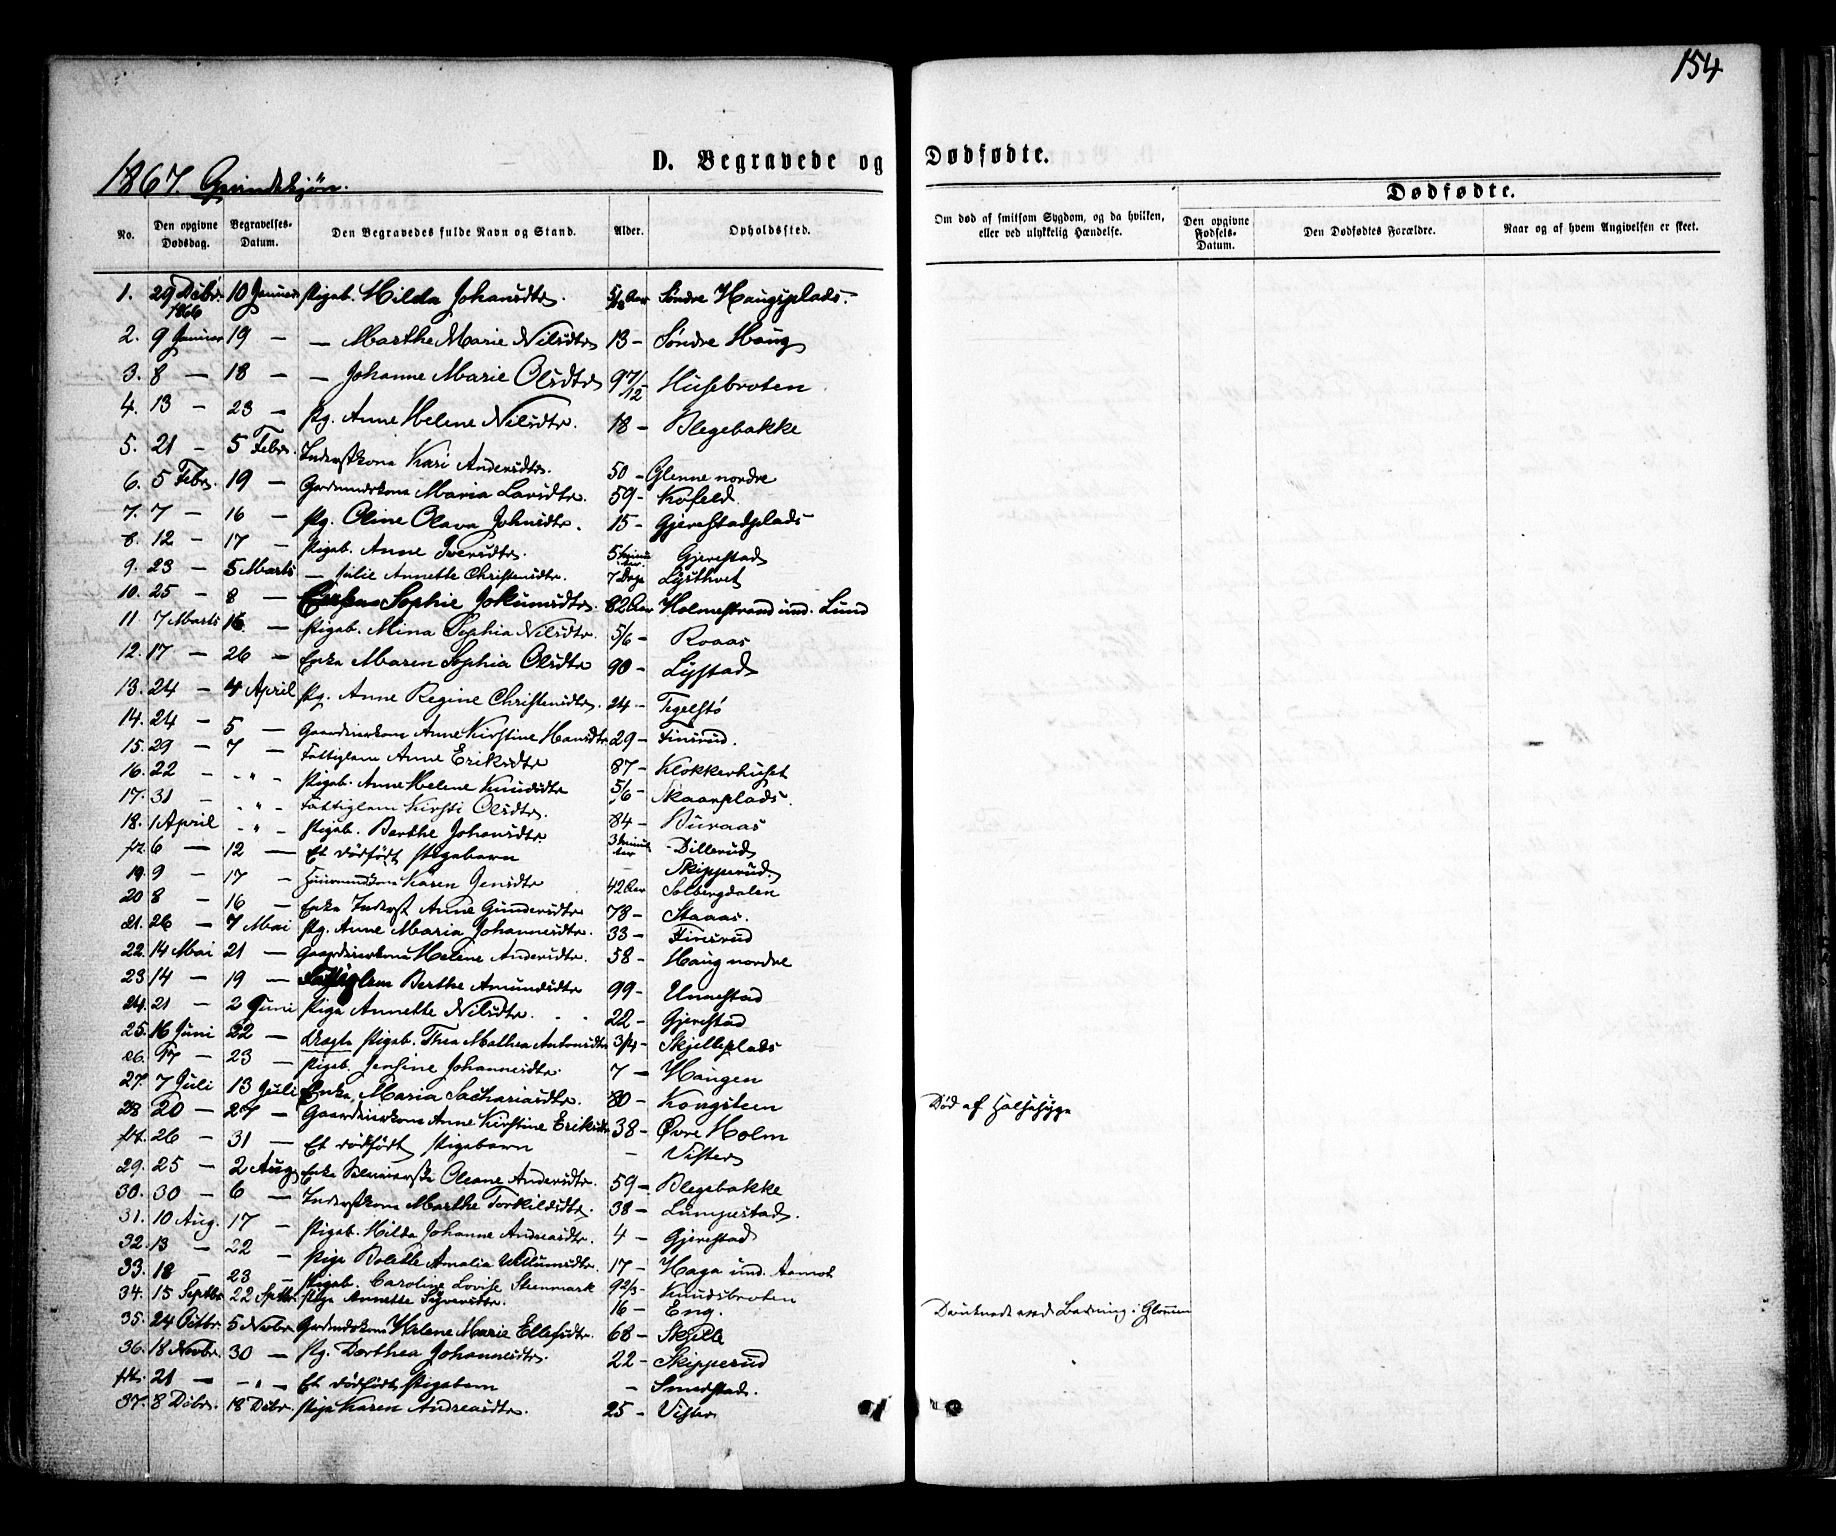 154
D. Begravede og Dødfødte.
1867. Qvindekjøn.
Dødfødte.
No. Den opgivne Dødsdag. Begravelses-Datum. Den Begravedes fulde Navn og Stand. Alder. Opholdssted. Om død af smitsom Sygdom, og da hvilken, eller ved ulykkelig Hændelse. Den opgivne Fødsels-Datum. Den Dødfødtes Forældre. Naar og af hvem Angivelsen er skeet.
1. 29 Dcbr. 1866 10 Januar Pigeb. Hilda Johansdtr. 5/12 Aar Søndre Haugsplads.
2. 9 Januar 19 — — Marthe Marie Nilsdtr 13 – Søndre Haug
3. 8 — 18 — — Johanne Marie Olsdtr 9 7/12 – Husebroten
4. 13 — 23 — Pg. Anne Helene Nilsdtr. 18 – Blegebakke
5. 21 — 5 Febr. Inderstkone Kari Andersdtr. 50 – Glenne nordre
6. 5 Febr. 19 — Gardmandskone Maria Larsdtr. 59 – Kofeld
7. 7 — 16 — Pg. Oline Olava Johnsdtr. 15 – Gjerestadplads
8. 12 — 17 — Pigeb. Anne Iversdtr. 5 minutter Gjerestad
9. 23 — 5 Marts — Julie Annette Christensdtr. 7 Dage Lysthvet
10. 25 — 8 — Sophie Jokumsdtr. 82 Aar Holmestrand ind. Lund
11. 7 Marts 16 — Pigeb. Mina Sophia Nilsdtr. 5/6 – Roaas
12. 17 — 26 — Enke Maren Sophia Olsdtr 90 – Lystad
13. 24 — 4 April Pg. Anne Regine Christensdtr. 24 – Tegelstø
14. 24 — 5 — Gaardeierkone Anne Kirstine Hansdtr 29 – Finsrud.
15. 29 — 7 — Fattiglem Anne Eriksdtr 87 – Klokkerhuset
16. 22 — „ — Pigeb. Anne Helene Knudsdtr 5/6 – Skaarplads.
17. 31 — „ — Fattiglem Kirsti Olsdtr. 84 – Buraas
18. 1 April — „ — Pigeb. Berthe Johansdtr. 3 minutter Dillerud
6 — 12 — Et dødfødt Pigebarn – Skipperud.
19. 9 — 17 — Huusmandskone Karen Jensdtr 42 Aar Solbergdalen
20 8 — 16 — Enke Inderst Anne Gundersdtr 78 – Staaas.
21. 26 — 7 Mai Pg. Anne Maria Johannesdtr. 33 – Finsrud
22. 14 Mai 21 — Gaardeierkone Helene Andersdtr. 58 – Haug nordre
23 14 — 19 — Fattiglem Berthe Amundsdtr 99 – Unnestad
24. 21 — 2 Juni Pige Annette Nilsdtr. 22 – Gjerestad
25. 16 Juni 22 — Uægte Pigeb. Thea Mathea Antonsdtr 3/4 – Skjelleplads
26. 17 — 23 — Pigeb. Jensine Johannesdtr. 7 – Haugen
27. 7 Juli 13 Juli Enke Maria Sachariasdtr. 80 – Kongsteen
28 20 — 27 — Gaardeierkone Anne Kirstine Eriksdtr 38 – Øvre Holm Død af Halssyge
26 — 31 — Et dødfødt Pigebarn – Vister
29. 25 — 2 Aug Enke Oleane Andersdtr. 59 – Blegebakke
30. 30 — 6 — Inderstkone Marthe Torkildsdtr. 38 – Lumpestad.
31. 10 Aug. 17 — Pigeb. Hilda Johanne Andreasdtr. 4 – Gjerestad
32. 13 — 22 — Pige Bolette Amalia Willumsdtr. 17 – Haga ind. Aamot
33. 18 — 23 — Pigeb. Caroline Lovise Steenmark 9 2/3 – Knudsbroten
34. 15 Septbr 22 Septbr. Pige Annette Syversdtr. 16 – Eng. Druknede ved Badning i Glommen
35. 24 Octbr. 5 Novbr. Gardmdskone Helene Marie Ellefsdtr. 68 – Skjelle
36. 18 Novbr. 30 — Pg. Dorthea Johannesdtr. 22 – Skipperud
21 — — „ — Et dødfødt Pigebarn – Smedstad.
37. 8 Dcbr. 18 Dcbr. Pige Karen Andreasdtr. 25 – Vister